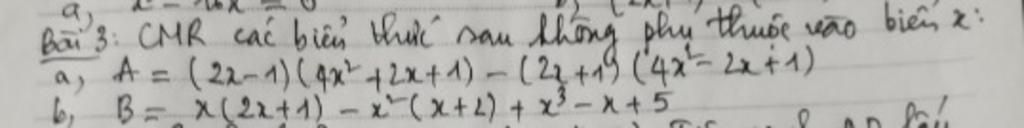 a,
Bài 3: CMR các biểu thức sau không phụ thuộc vào biến x:
a, A = (2x-1)(4x²+2x+1) - (2x+1)(4x²-2x+1)
b, B = x(2x+1) - x²(x+2) + x³ - x + 5